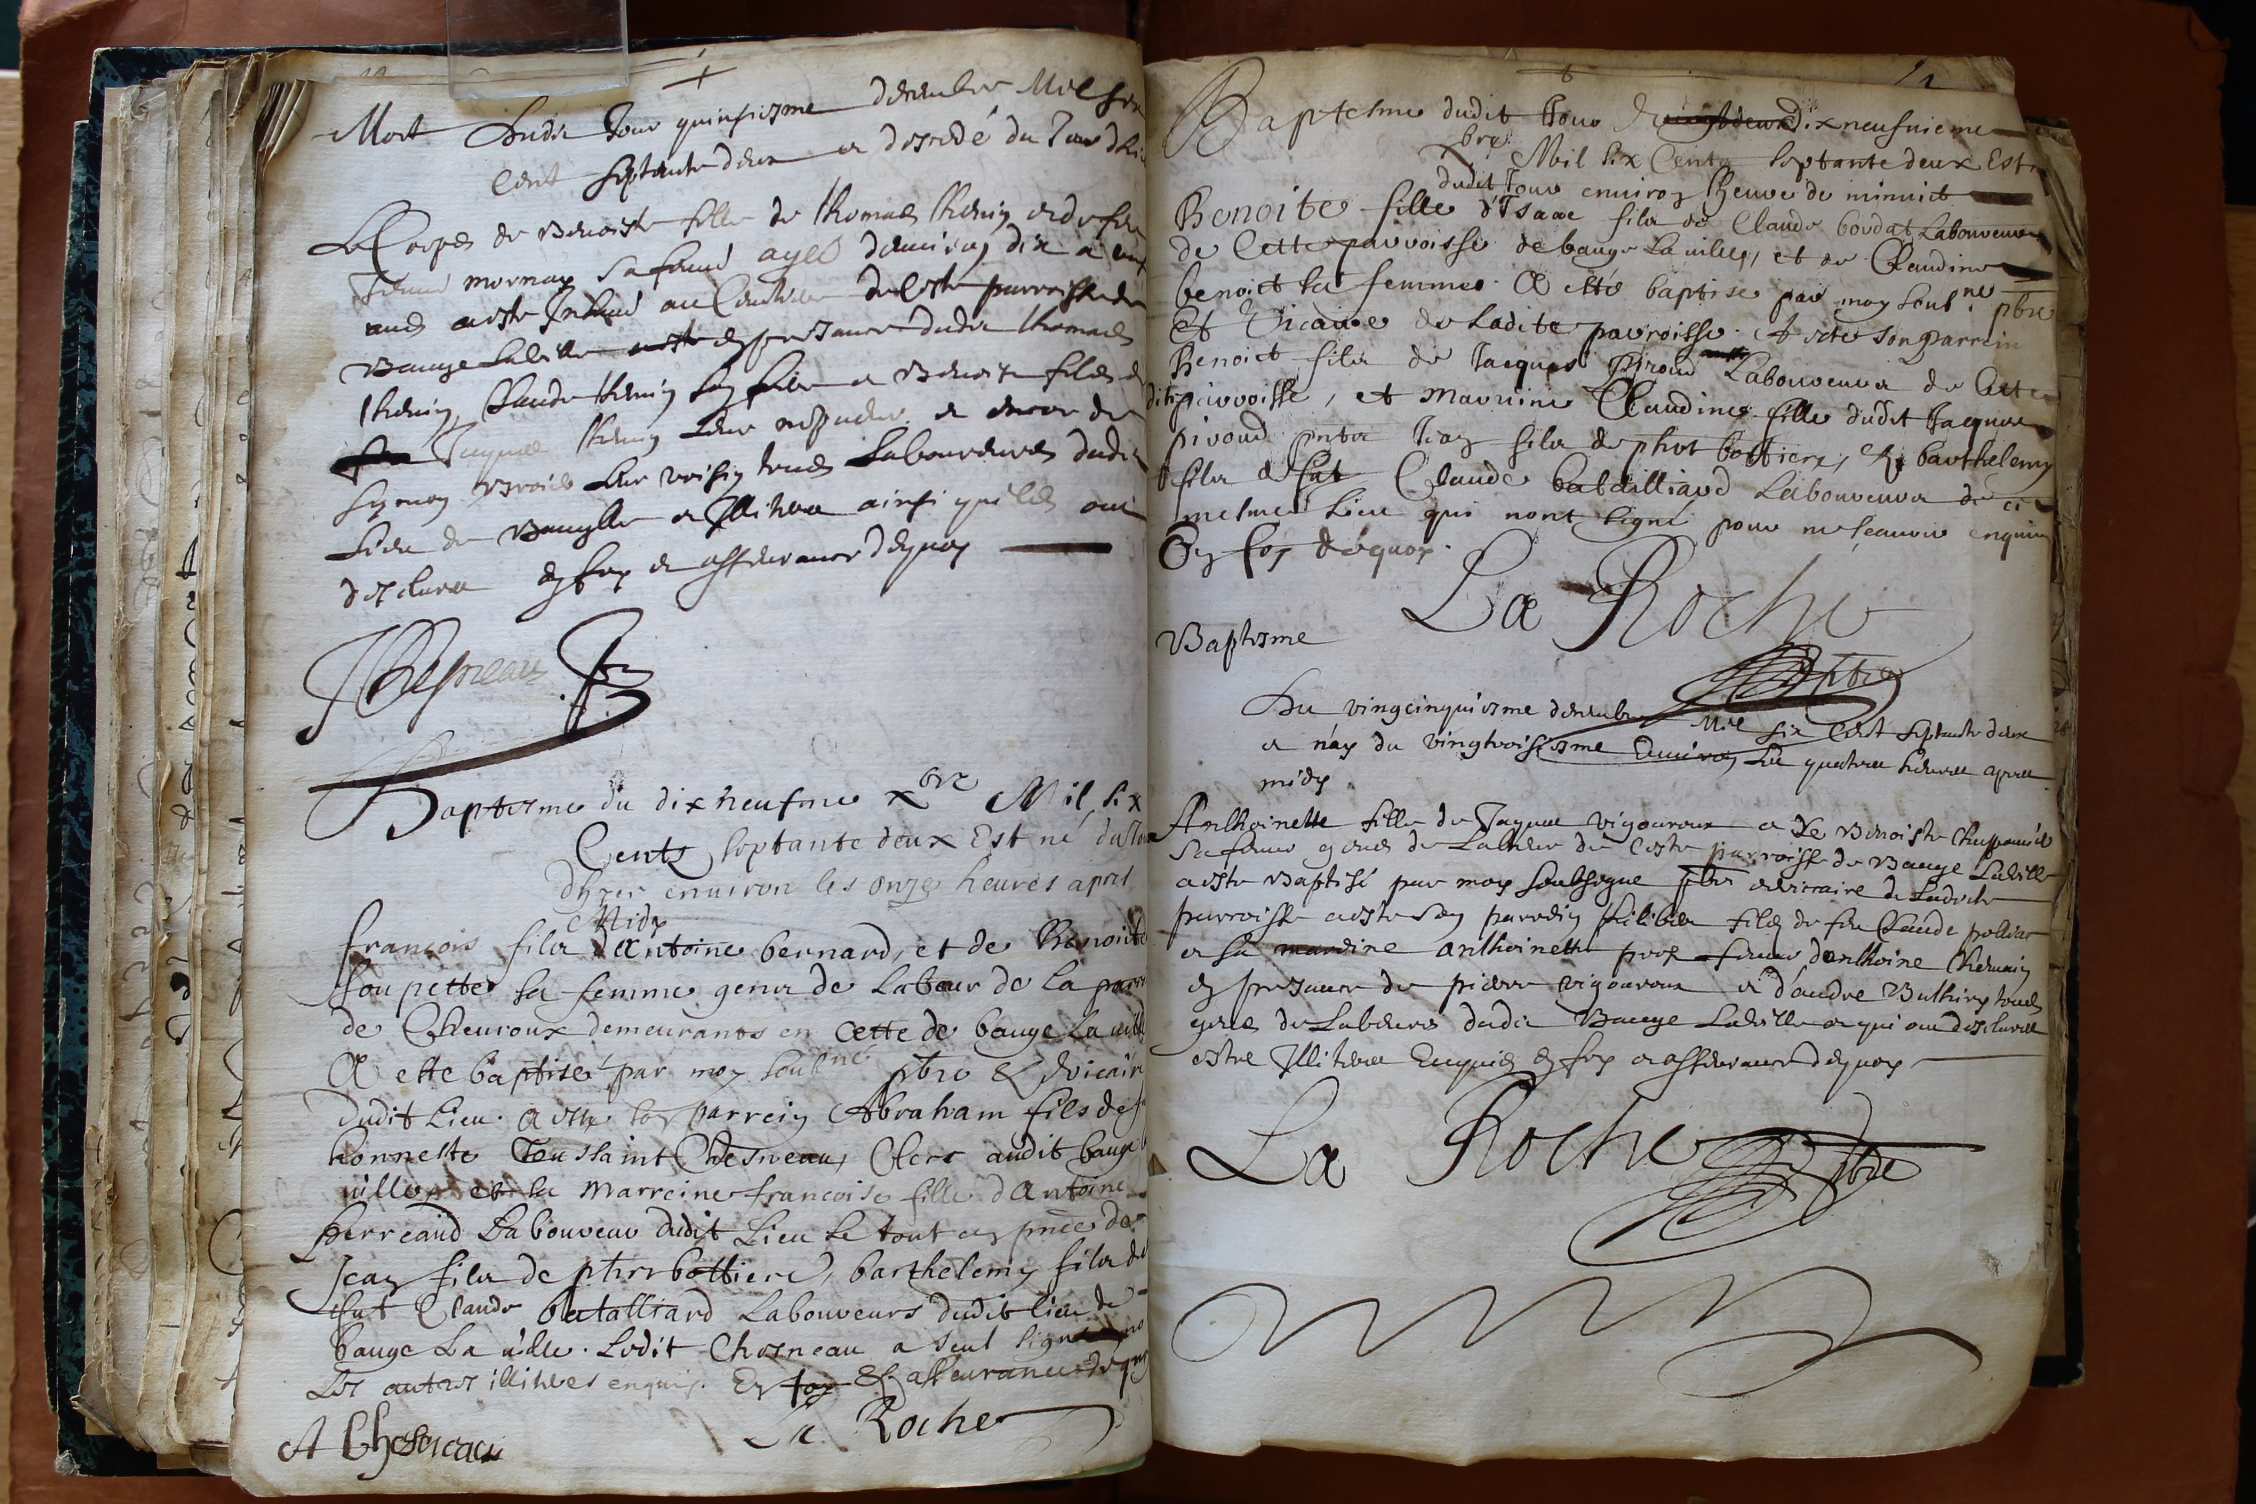 Mort Dudit Jour quinsiesme decembre Mil six
Cent septante deux a decedé du Jour d'hier
Le Corps de Benoiste fille de Thomas Thenin et de feu
mornay sa femme agee d'environ dix a unze
ans a esté Inhumé au Cimetiere de Ceste parroisse de
Bauge La ville en presance dudit Thomas
Thenin, Claude Thenin son fils et Benoist fils de
Jaques Thenin leur nepveu et encor de
Leur voisin tous Laboureurs dudit
Lieu de Baugella et Illiteres ainsi quils ont
desclaré en foy et asseurance dequoy
Chesneau
Baptesme du dix neufme Xbre Mil six
Cents septante deux Est né du Jour
d'hyer environ les onze heures apres
Midy
françois fils d'Antoine bernard, et de Benoite
Loupette sa femme gens de Labeur de la parro
de Cheuroux demeurants en cette de bauge La ville
A esté baptisé par moy soubsné pbre & vicaire
dudit Lieu. a esté son parrein Abraham fils de
honneste Toussaint Chesneau, Clerc audit bauge
ville, et sa Marreine françoise fille d'Antoine
Perreaud Laboureur dudit Lieu Le tout en pnce de
Jean fils de phir bottiere, barthelemy fils de
fut Claude batalliard Laboureurs dudit lieu de
bauge La ville. Ledit Chesneau a seul signé
Les autres illiteres enquis. En foy & asseurance dequoy
La Roche
A Chesneau
Baptesme dudit Jour dixneufuieme
bre Mil six Cents septante deux Est
dudit Jour environ Lheure de minuict
Benoite fille d'Isaac fils de Claude bordat Laboureur
de Cette parroisse de bauge La ville, et de Claudine
benoict sa femme. A esté baptisé par moy soubsné pbre
Et Vicaire de Ladite parroisse. A esté son parrein
Benoict fils de Jacques Piroud Laboureurs de Cette
dite parroisse, et Marrine Claudine fille dudit Jacques
piroud pnts Jean fils de phir bottiere, & barthelemy
fils de fut Claude bataillard Laboureurs de ce
mesme Lieu qui nont signé pour ne sçauoir enquis
En foy dequoy.
La Roche
pbre
Baptesme
Du vingcinquiesme decembre Mil six Cent septante deux
a nay du vingtroisiesme Environ Les quatres heures apres
midy
Anthoinette fille de Jaques vigouroux et de Benoiste
sa femme gens de Labeur de Ceste parroisse de Bauge Laville
a esté Baptisé par moy soubsigné pbre et viccaire de Ladicte
parroisse a esté son parrein filiber fils de feu Claude polliac
et sa mareine anthoinette femme d'anthoine Thenain
en presance de pierre vigouroux et d'andre Buthiry tous
gens de Labeurs dudit Bauge Laville et qui ont desclaré
estre Illiteres Enquis en foy et asseurance dequoy
La Roche
pbre